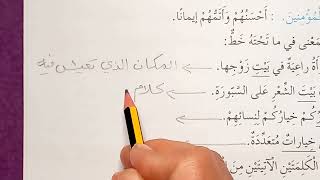 مؤمنينَ. : أَحْسَنُهُمْ وَأَتَمُّهُمْ إيمانًا.
مَعْنى في ما تَحْتَهُ خَطٌّ:
أَةُ راعِيَةٌ في بَيْتِ زَوْجِها. المكان الذي نعيش فيه
بَيْتَ الشِّعْرِ عَلى السَّبّورَةِ. كلام
كُمْ خِيارُكُمْ لِنِسائِهِمْ.
خِياراتٌ مُتَعَدِّدَةٌ.
الْكَلِمَتَيْنِ الْآتِيَتَيْنِ مِنَ